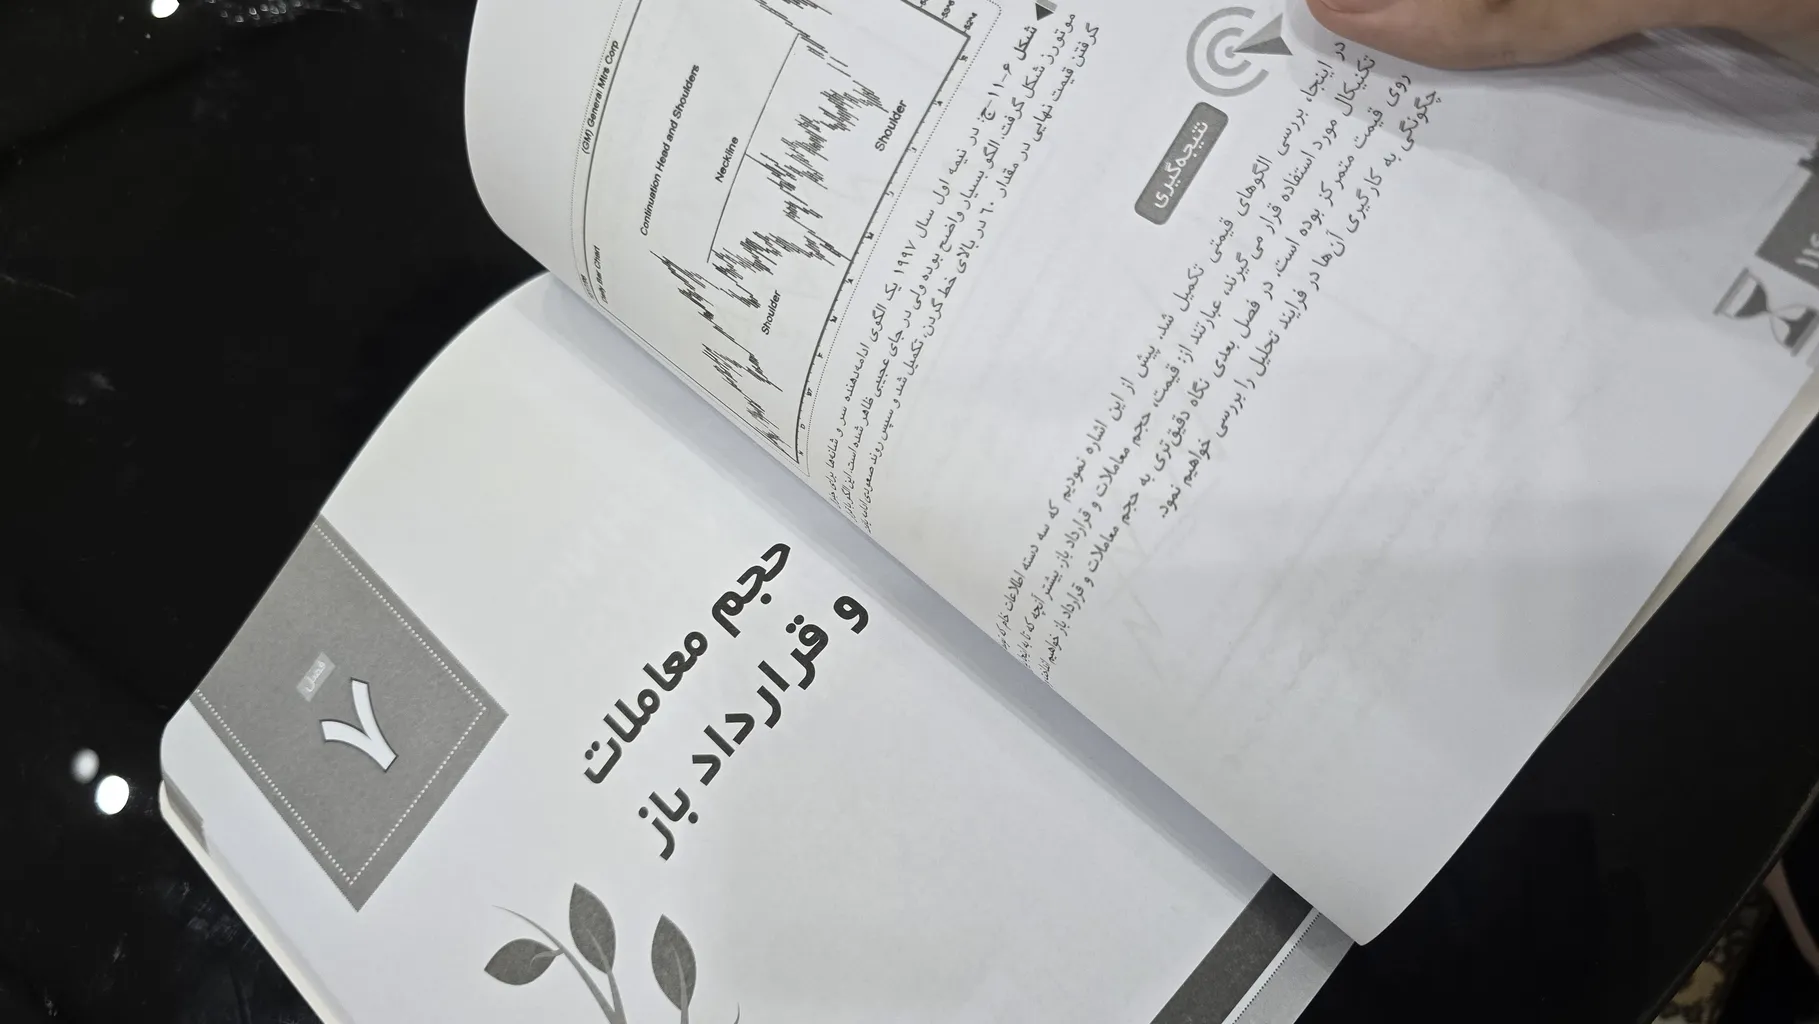 (GM) General Mtrs Corp
Continuation Head and Shoulders
Neckline
Shoulder
Shoulder
شکل ۶-۱۱-ج: در نیمه اول سال ۱۹۹۷ یک الگوی ادامه‌دهنده سر و شانه‌ها برای
موتورز شکل گرفت. الگو بسیار واضح بوده ولی در جای عجیبی ظاهر شده است. این الگو با
گرفتن قیمت نهایی در مقدار ۶۰ در بالای خط گردن، تکمیل شد و سپس روند صعودی
نتیجه‌گیری
در اینجا، بررسی الگوهای قیمتی تکمیل شد. پیش از این اشاره نمودیم که سه دسته اطلاعات خام که
تکنیکال مورد استفاده قرار می گیرند، عبارتند از: قیمت، حجم معاملات و قرارداد باز. بیشتر آنچه که تا به
روی قیمت متمرکز بوده است. در فصل بعدی نگاه دقیق‌تری به حجم معاملات و قرارداد باز خواهیم
چگونگی به کارگیری آن‌ها در فرایند تحلیل را بررسی خواهیم نمود.
فصل
۷
حجم معاملات
و قرارداد باز